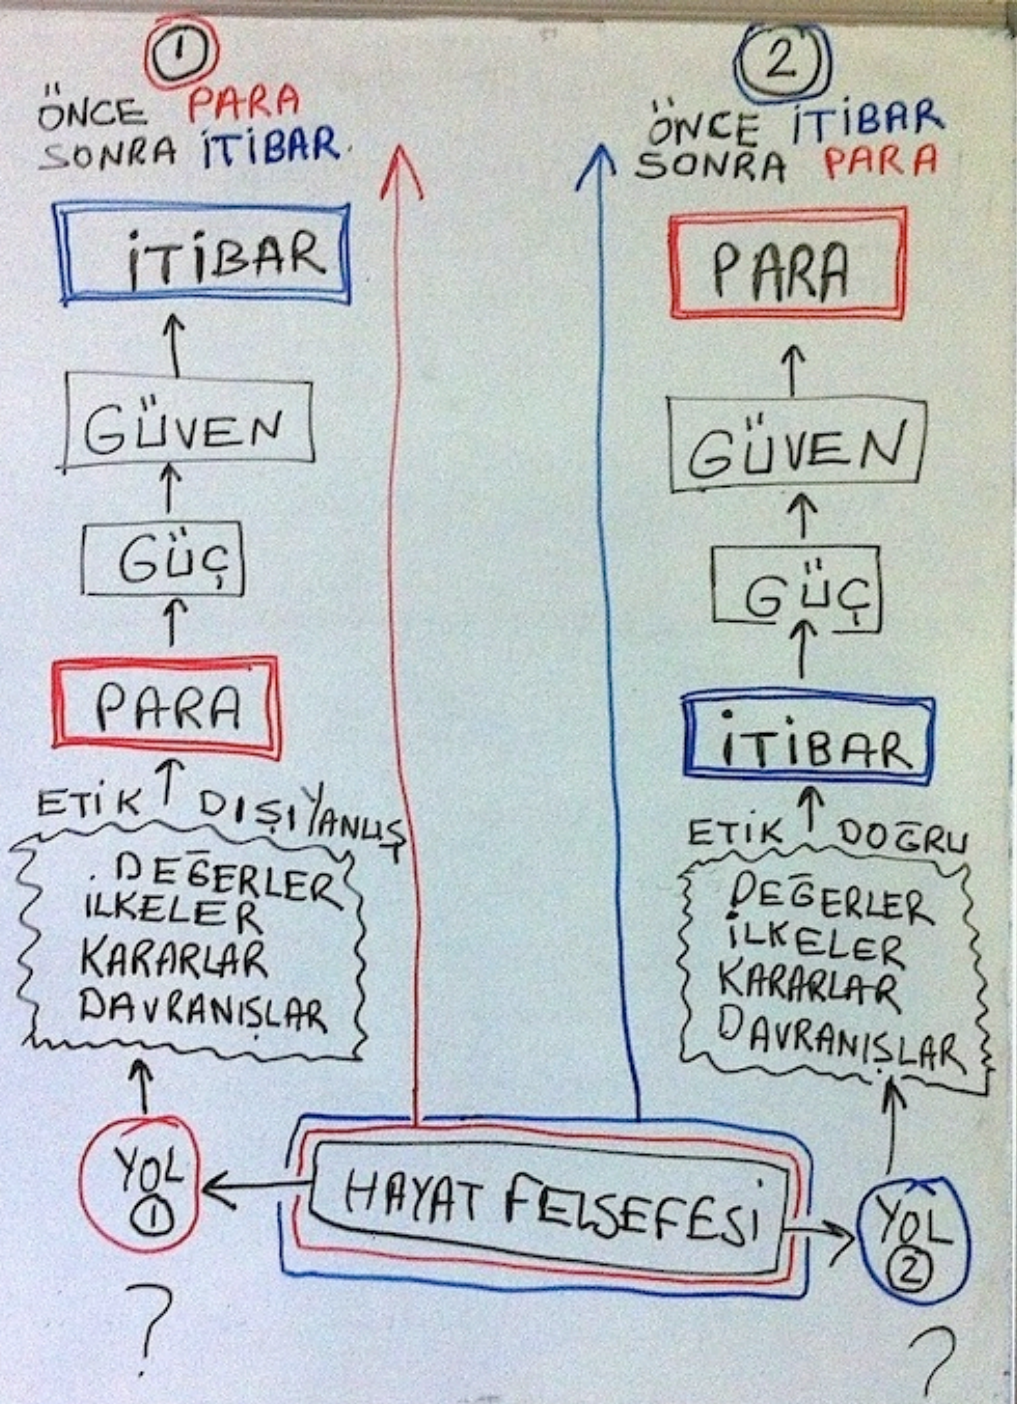 1
ÖNCE PARA
SONRA İTİBAR.
İTİBAR
GÜVEN
GÜÇ
PARA
ETİK DIŞI YANLIŞ
. DEĞERLER
İLKELER
KARARLAR
DAVRANIŞLAR
YOL
1
?
HAYAT FELSEFESİ
2
ÖNCE İTİBAR
SONRA PARA
PARA
GÜVEN
GÜÇ
İTİBAR
ETİK DOĞRU
DEĞERLER
İLKELER
KARARLAR
DAVRANIŞLAR
YOL
2
?